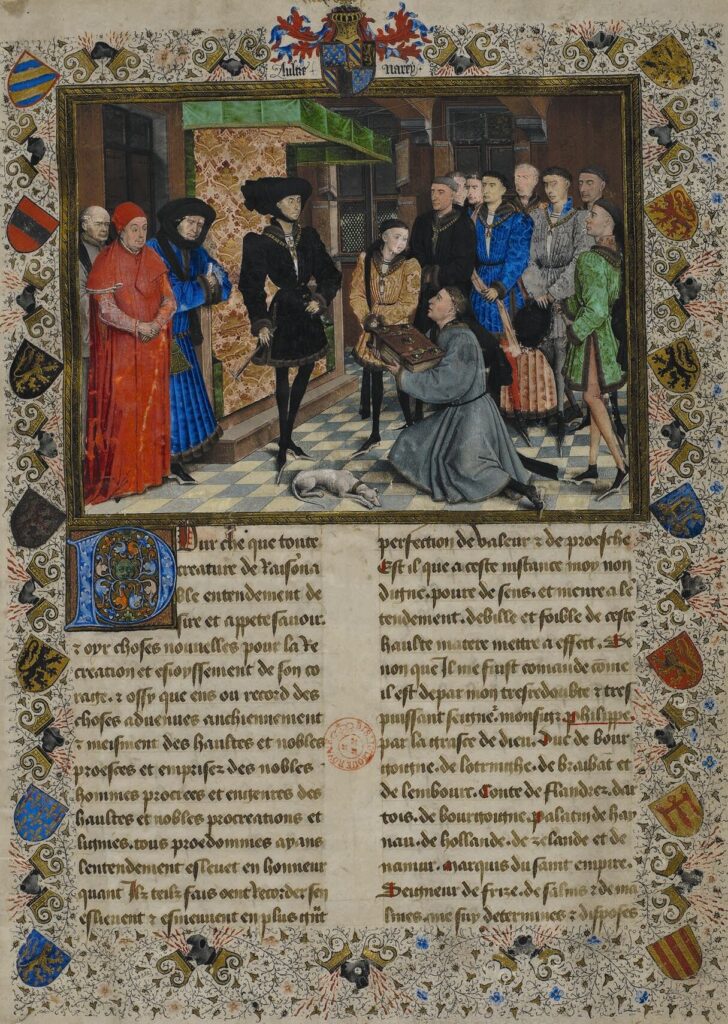 Aultre Narey
Pour che que toute
creature de Raisonna
ble entendement de
sire et appete sauoir.
⁊ oyr choses nouuelles pour la Re
creation et esioyssement de son co
raige. ⁊ ossy que ens ou record des
choses aduenues anchiennement
⁊ meisment des haultes et nobles
proesces et emprises des nobles
hommes procrees et engenres des
haultes et nobles procreations et
lignies. tous proedommes ayans
lentendement esleuet en honneur
quant Ilz telz fais oent Recorder sen
eslieuent ⁊ esmeuuent en plus grãt
perfection de valeur ⁊ de proesche
Est il que a ceste instance moy non
digne. poure de sens. et menre a lẽ
tendement. debille et foible de ceste
haulte matere mettre a effect. Se
non que Il me fust comande cõme
il est depar mon tresredoubte ⁊ tres
puissant seigneʳ. monsigʳ philippe.
par la grasce de dieu. Duc de bour
goigne. de lotringhe. de braibat et
de lembourc. Conte de flandrez. dar
tois. de bourgoingne. palatin de hay
nau. de hollande. de zelande et de
namur. Marquis du saint empire.
Seigneur de frize. de salins ⁊ de ma
lines. me suy determines ⁊ disposes